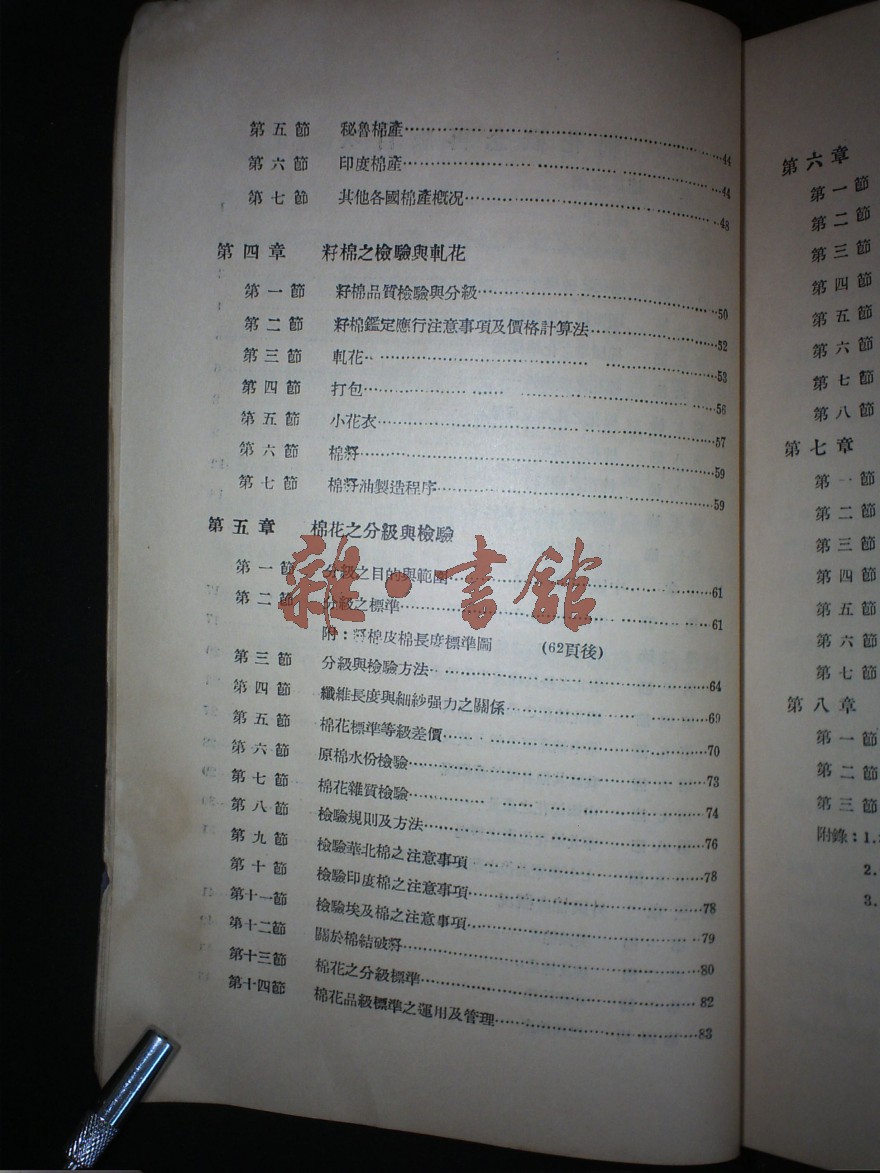 第五節 秘魯棉產………44
第六節 印度棉產………44
第七節 其他各國棉產概况………48
第四章 籽棉之檢驗與軋花
第一節 籽棉品質檢驗與分級………50
第二節 籽棉鑑定應行注意事項及價格計算法………52
第三節 軋花………53
第四節 打包………56
第五節 小花衣………57
第六節 棉籽………59
第七節 棉籽油製造程序………59
第五章 棉花之分級與檢驗
第一節 分級之目的與範圍………61
第二節 分級之標準………61
附：籽棉皮棉長度標準圖 (62頁後)
第三節 分級與檢驗方法………64
第四節 纖維長度與細紗强力之關係………69
第五節 棉花標準等級差價………70
第六節 原棉水份檢驗………73
第七節 棉花雜質檢驗………74
第八節 檢驗規則及方法………76
第九節 檢驗華北棉之注意事項………78
第十節 檢驗印度棉之注意事項………78
第十一節 檢驗埃及棉之注意事項………79
第十二節 關於棉結破籽………80
第十三節 棉花之分級標準………82
第十四節 棉花品級標準之運用及管理………83
雜·書館
第六章
第一節
第二節
第三節
第四節
第五節
第六節
第七節
第八節
第七章
第一節
第二節
第三節
第四節
第五節
第六節
第七節
第八章
第一節
第二節
第三節
附錄：1.
2.
3.